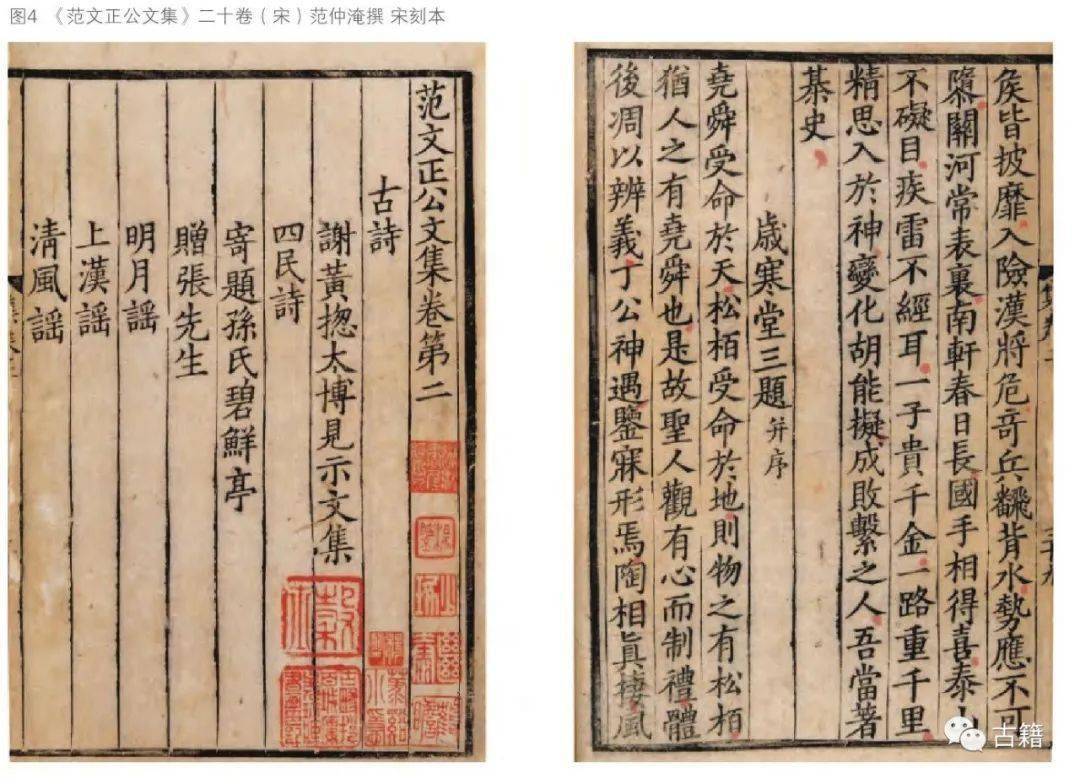 图4 《范文正公文集》二十卷（宋）范仲淹撰 宋刻本
范文正公文集卷第二
古詩
謝黃揔太博見示文集
四民詩
寄題孫氏碧鮮亭
贈張先生
明月謡
上漢謡
清風謡
侯皆披靡入險漢將危奇兵飜背水勢應不可
隳關河常表裏南軒春日長國手相得喜泰山
不礙目疾雷不經耳一子貴千金一路重千里
精思入於神變化胡能擬成敗繫之人吾當著
棊史
歳寒堂三題 并序
堯舜受命於天松栢受命於地則物之有松栢
猶人之有堯舜也是故聖人觀有心而制禮體
後凋以辨義丁公神遇鑒寐形焉陶相真棲風
古籍